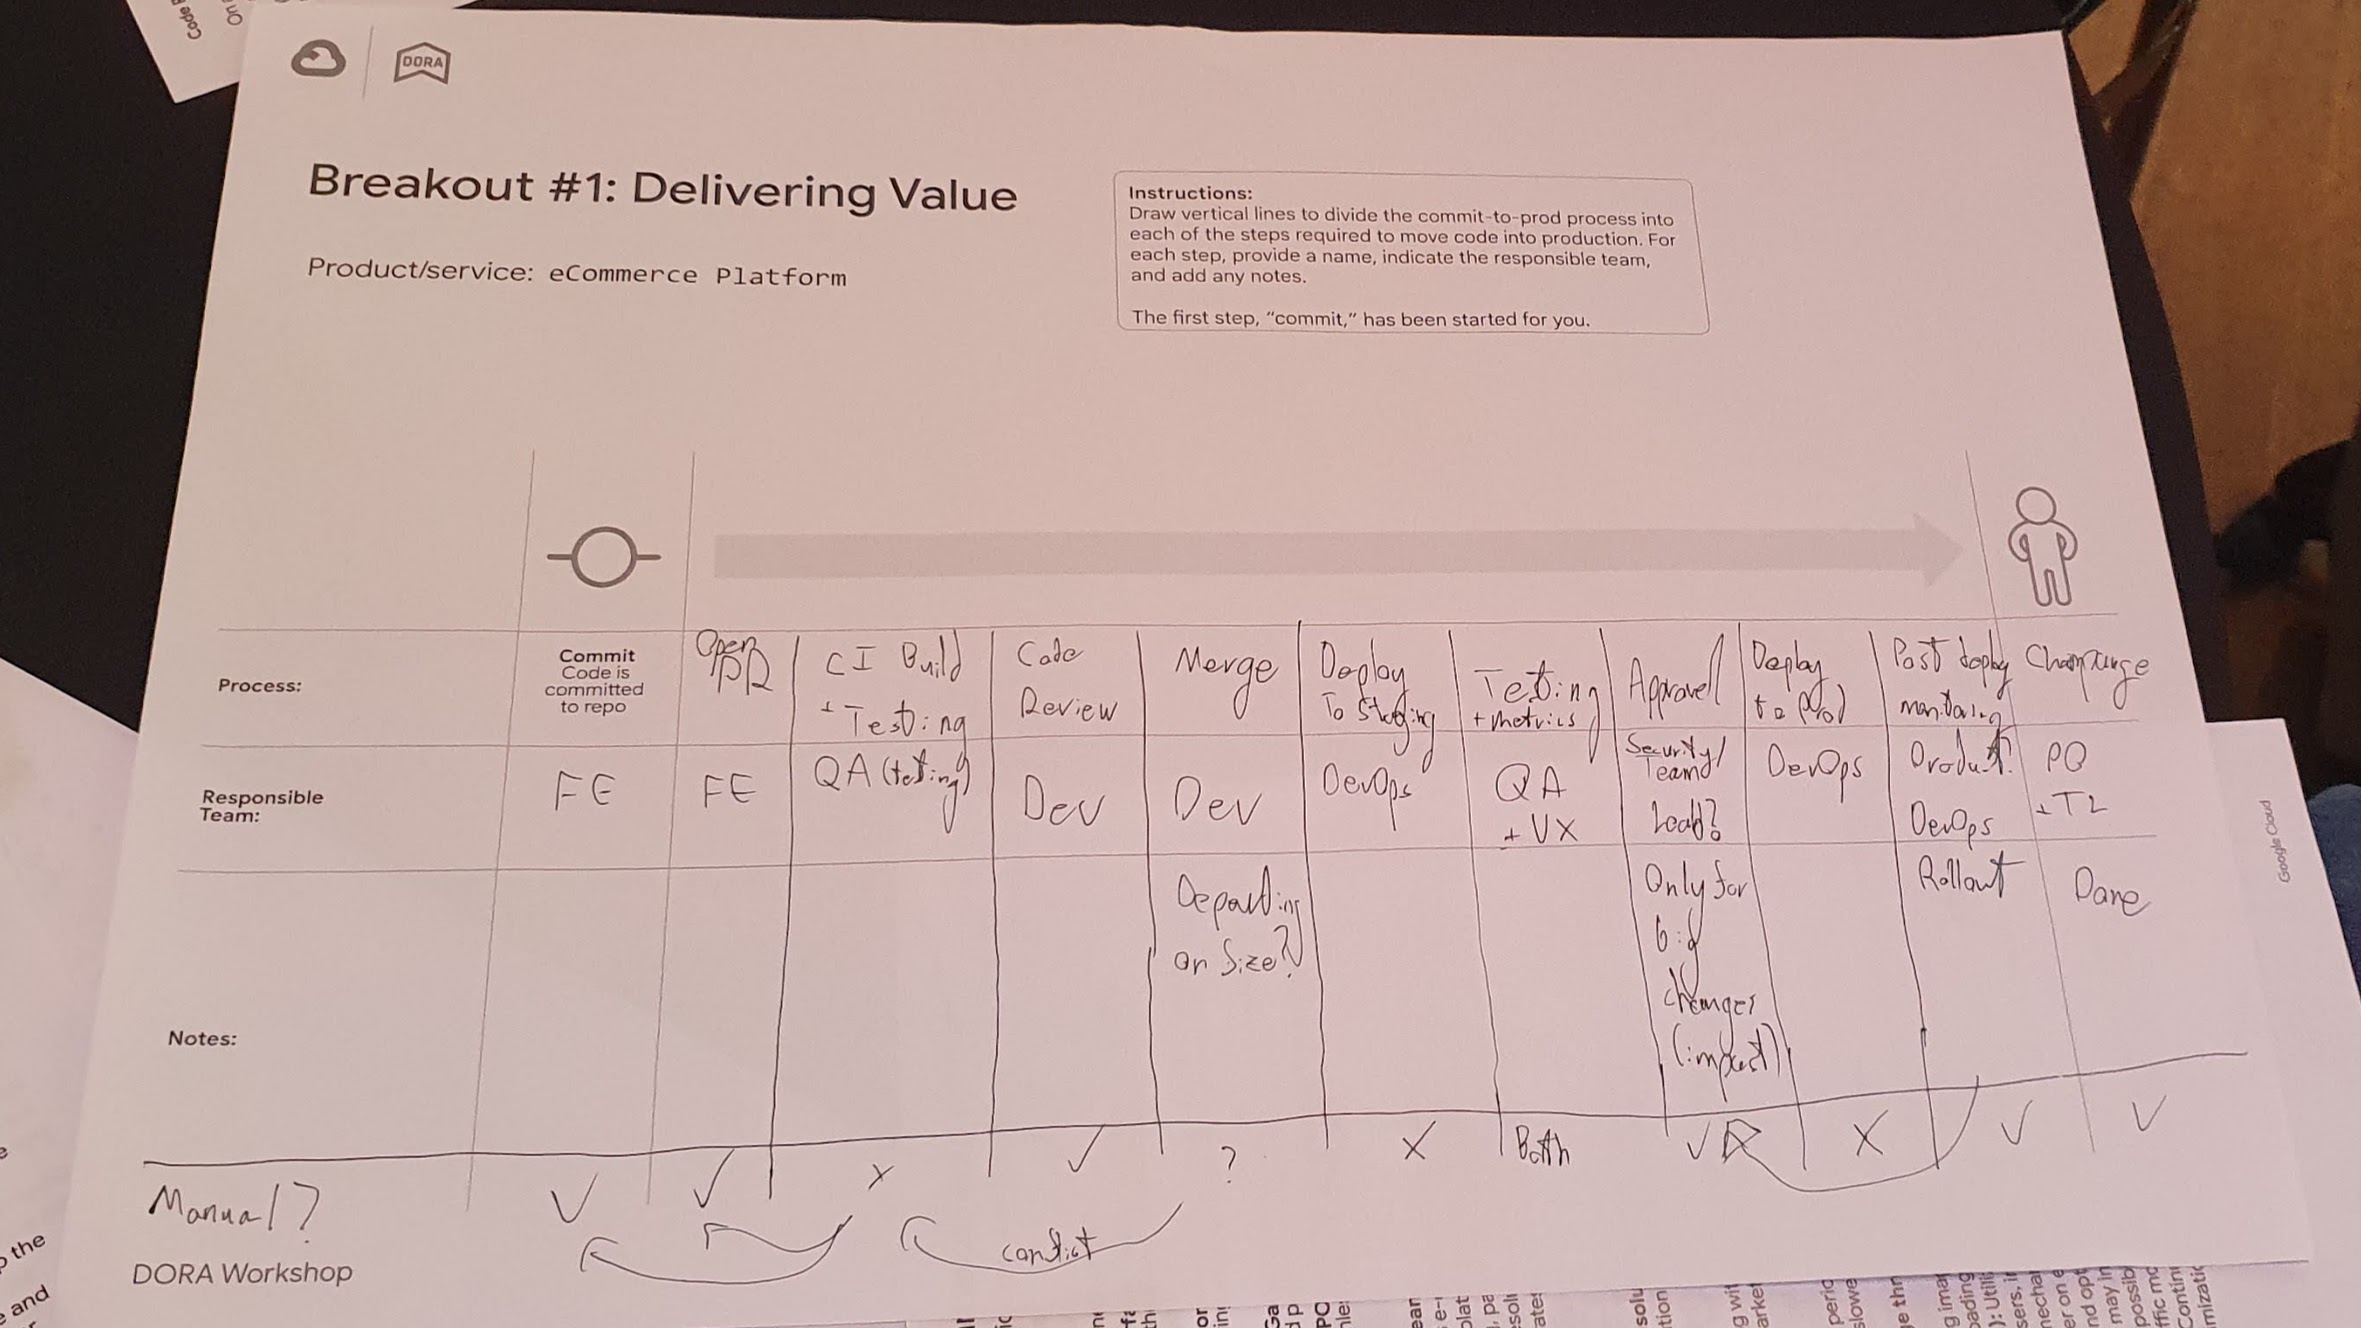 DORA
Breakout #1: Delivering Value
Product/service: eCommerce Platform
Instructions:
Draw vertical lines to divide the commit-to-prod process into
each of the steps required to move code into production. For
each step, provide a name, indicate the responsible team,
and add any notes.
The first step, “commit,” has been started for you.
Process:
Commit
Code is
committed
to repo
Open
PR
CI Build
+ Testing
Code
Review
Merge
Deploy
To Staging
Testing
+ metrics
Approval
Deploy
to Prod
Post deploy
monitoring
Responsible
Team:
FE
FE
QA (testing)
Dev
Dev
DevOps
QA
+ UX
Security/
Team
Lead?
DevOps
Product?
DevOps
PO
+ TL
Notes:
Depending
on Size?
Only for
big
changes
(impact)
Rollout
Manual?
x
?
X
Both
X
conflict
DORA Workshop
Google Cloud
Code
On
p the
and